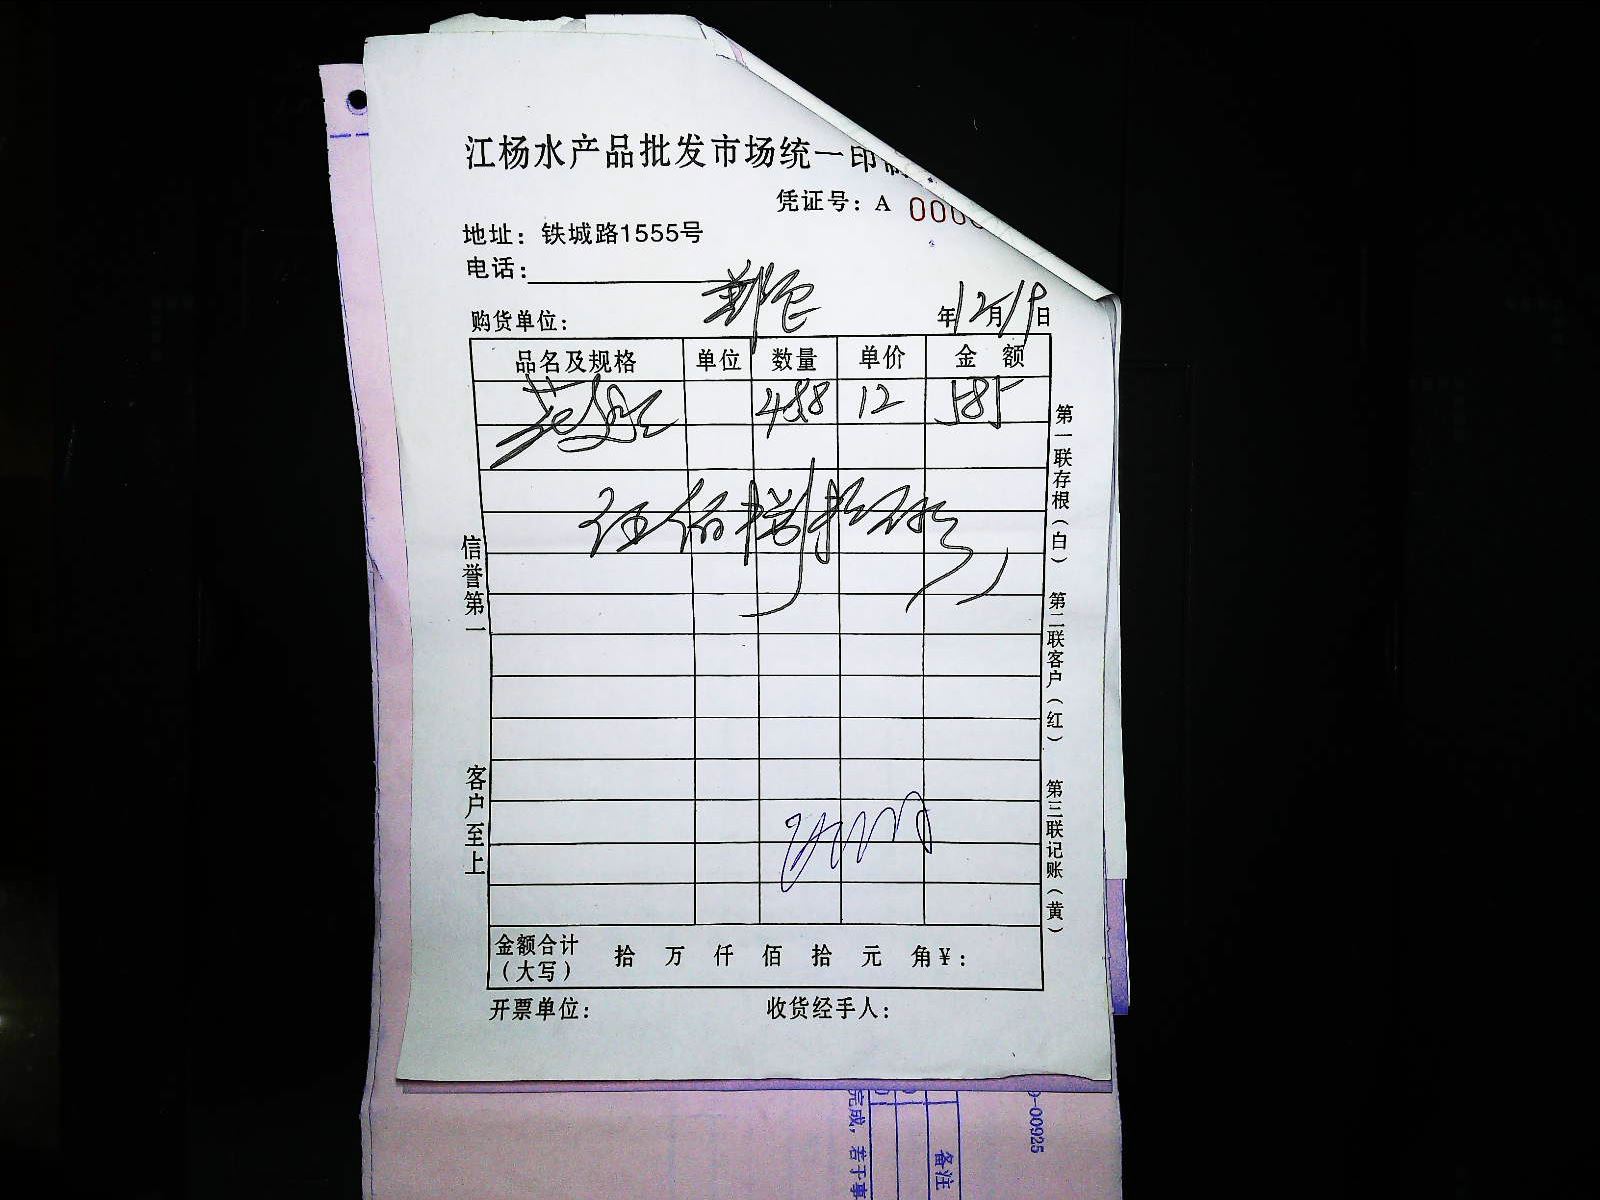 江杨水产品批发市场统一印制
凭证号：A 000
地址：铁城路1555号
电话：
购货单位：
年12月19日
品名及规格 单位 数量 单价 金 额
488 12 585
伍佰捌拾伍元
信誉第一
客户至上
第一联存根（白） 第二联客户（红） 第三联记账（黄）
金额合计（大写） 拾 万 仟 佰 拾 元 角 ¥：
开票单位： 收货经手人：
-00925
备注
完成，若于事